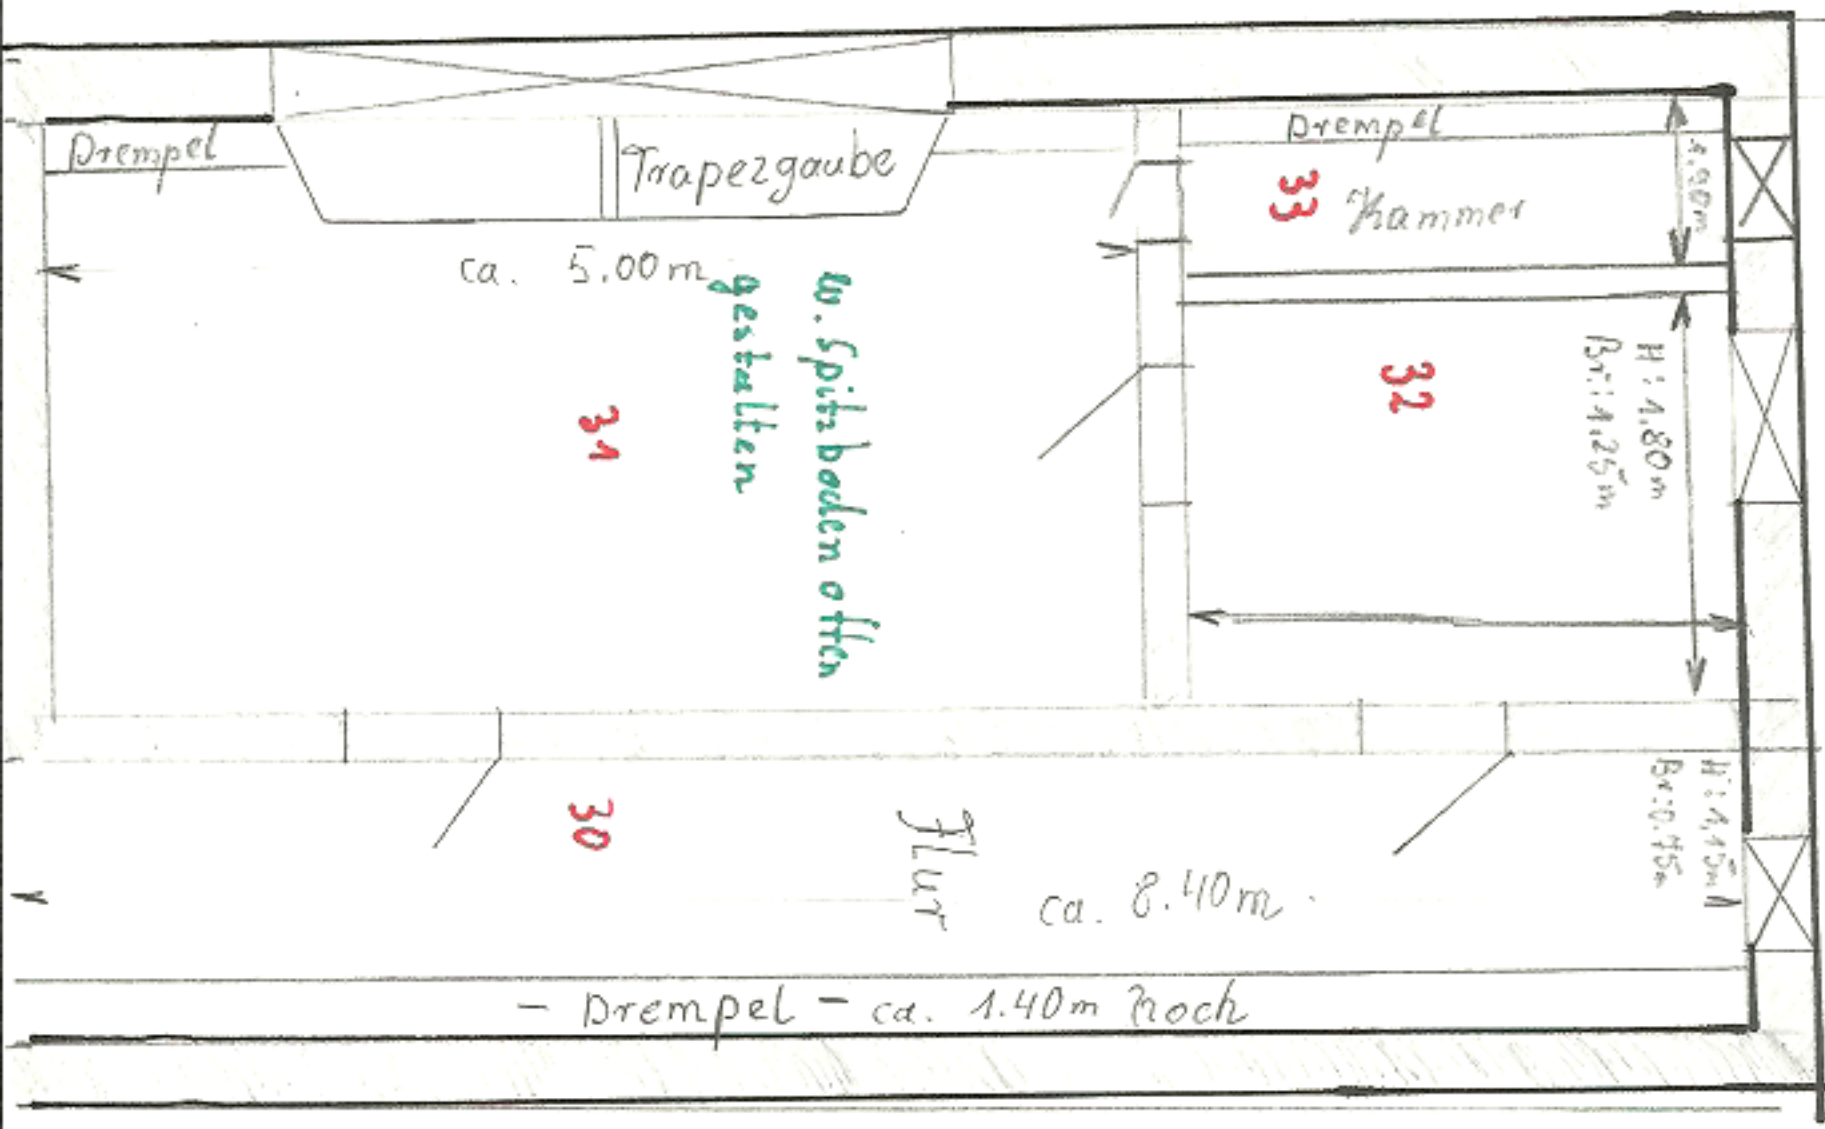 Drempel
Trapezgaube
Drempel
1.90m
33
Kammer
ca. 5.00m
w. Spitzboden offen
gestalten
31
32
H: 1.80m
Br.: 1.25m
30
Flur
ca. 8.40m
H: 1,15m
Br.: 0.75m
- Drempel - ca. 1.40m hoch